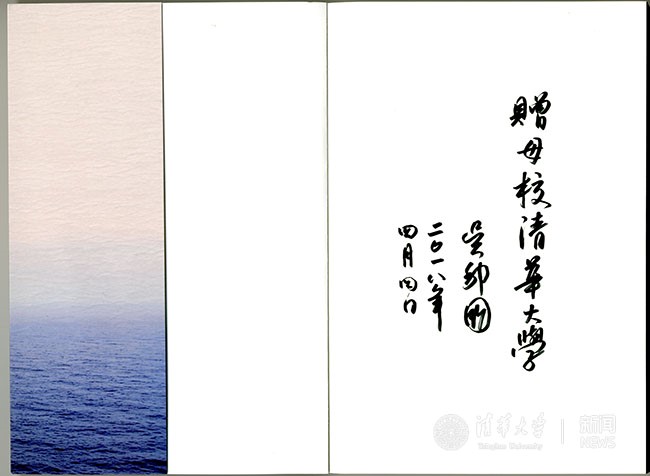 贈母校清華大學
吴邦国
二〇一八年
四月四日
清華大学
Tsinghua University
新闻
NEWS